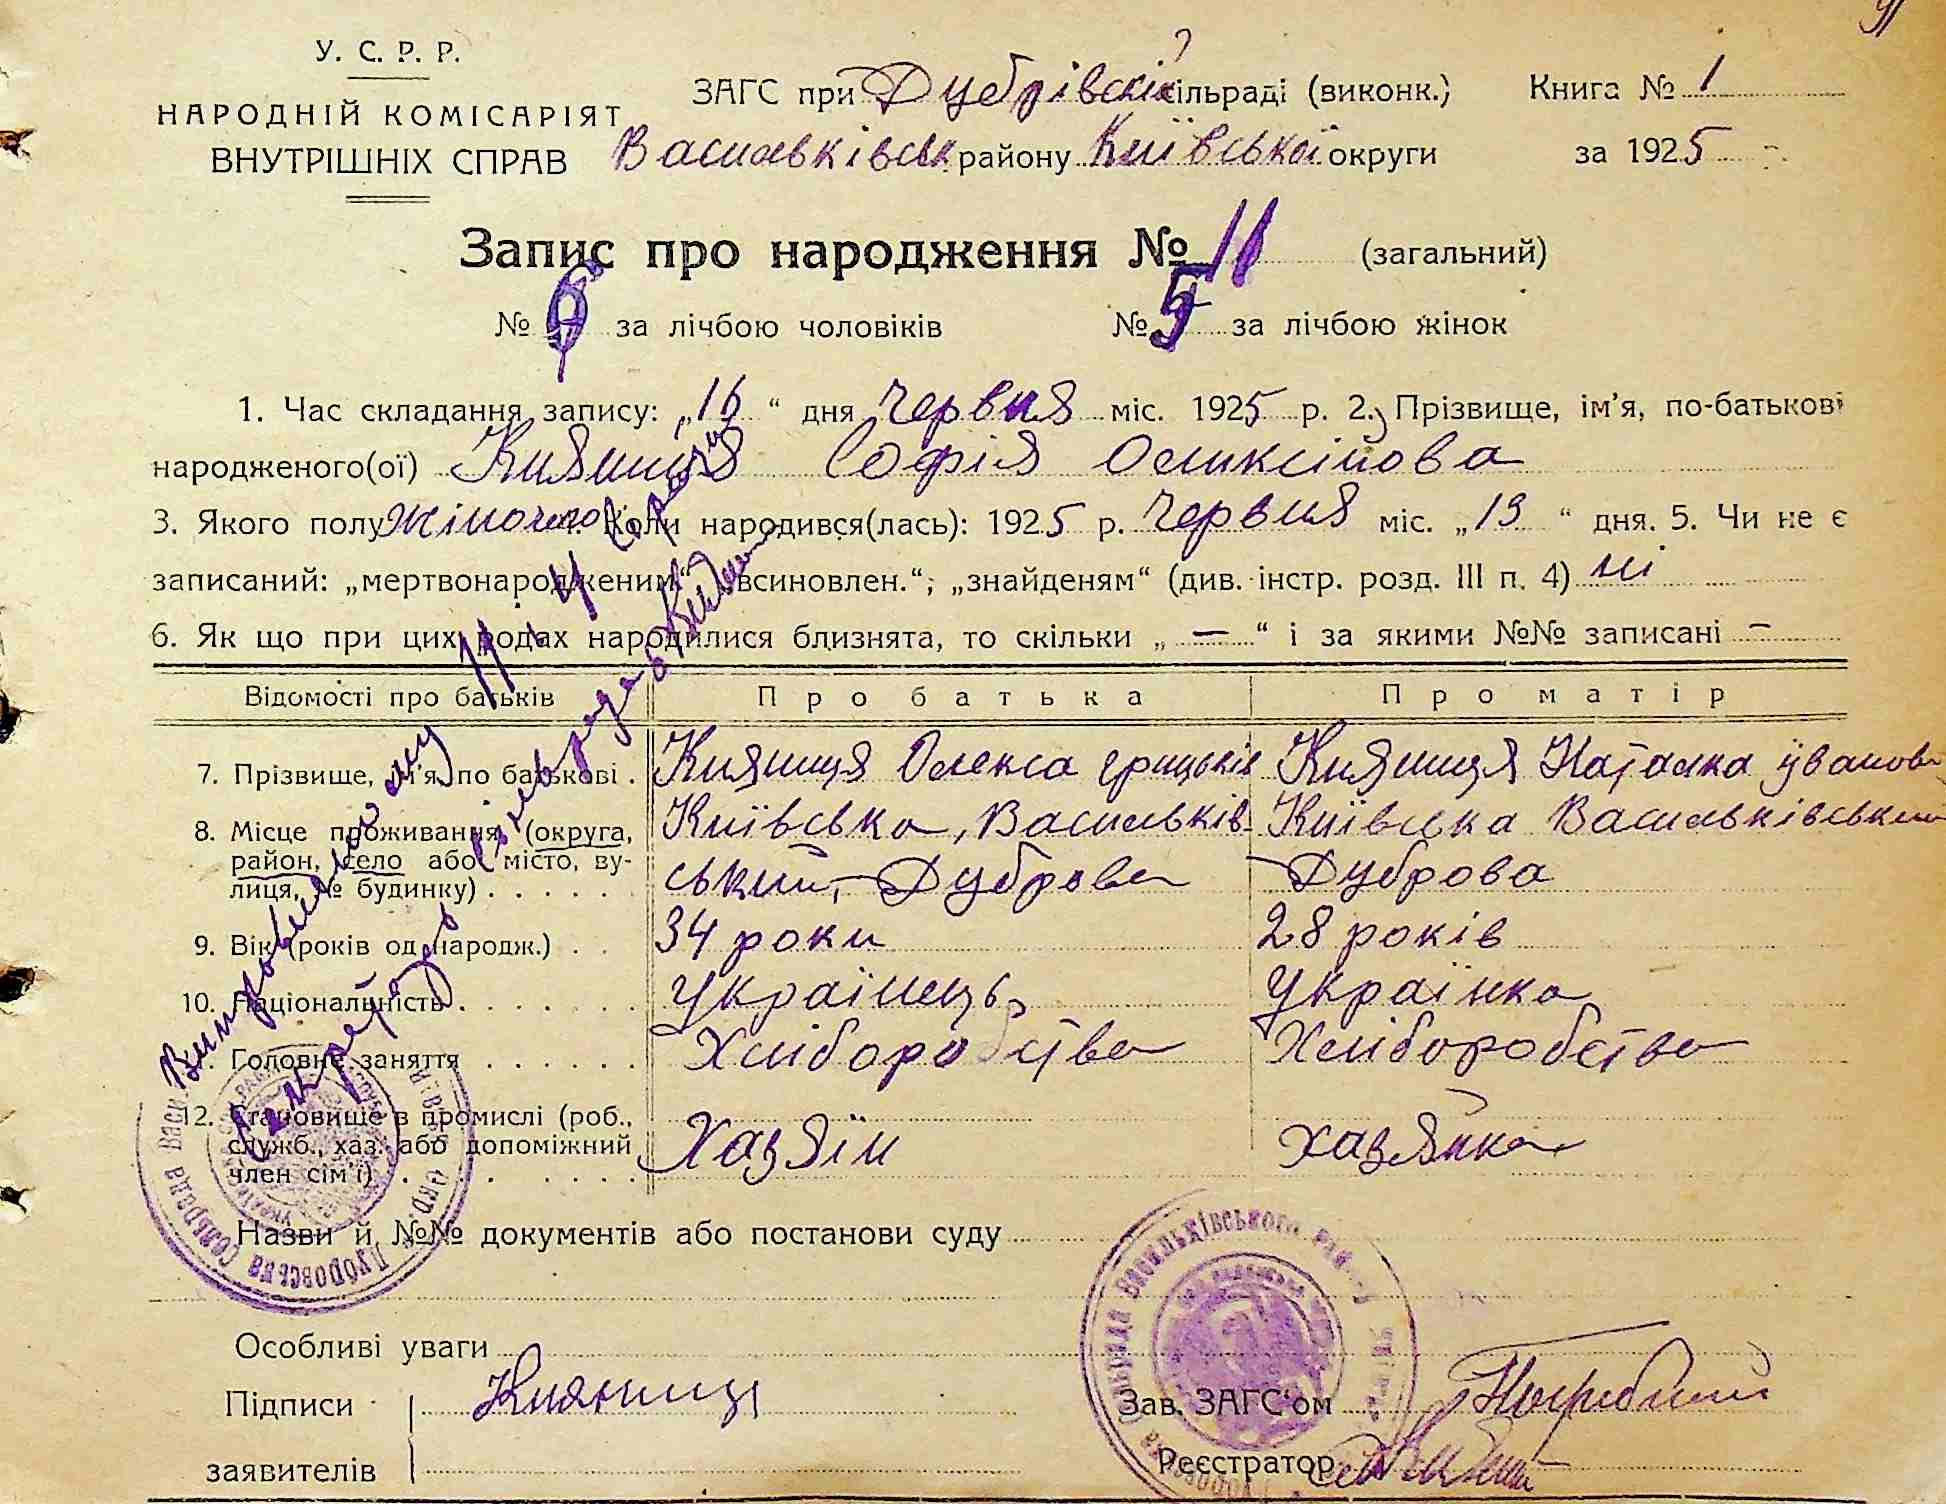 У. С. Р. Р.
НАРОДНІЙ КОМІСАРІЯТ
ВНУТРІШНІХ СПРАВ
ЗАГС при Дубрівскій сільраді (виконк.)
Васильківськ. району Київської округи
Книга № 1
за 1925
Запис про народження № 11 (загальний)
№ за лічбою чоловіків № 5 за лічбою жінок
1. Час складання запису: „16“ дня Червня міс. 1925 р. 2. Прізвище, ім’я, по-батькові
народженого(ої) Княниця Софія Оликсіпова
3. Якого полу Жіночого 4. Коли народився(лась): 1925 р. Червня міс. „13“ дня. 5. Чи не є
записаний: „мертвонародженим“ „всиновлен.“, „знайденям“ (див. інстр. розд. III п. 4) ні
6. Як що при цих родах народилися близнята, то скільки „—“ і за якими №№ записані —
Відомості про батьків Про батька Про матір
7. Прізвище, ім’я, по батькові . Княниця Олекса грицьків Княниця Наталка іванова
8. Місце проживання (округа, Київська, Васильків- Київська Васильківський
район, село або місто, ву- ський, Дуброва Дуброва
лиця, № будинку) . . . . .
9. Вік (років од народж.) . . 34 роки 28 років
10. Національність . . . . . . Українець Українка
11. Головне заняття . . . . . . Хліборобство Хліборобство
12. Становище в промислі (роб.,
служб., хаз. або допоміжний Хазяїн хазяйка
член сім’ї) . . . . . . .
Назви й №№ документів або постанови суду
Особливі уваги
Підписи Княниця
заявителів
Зав. ЗАГС‘ом Погребний
Реєстратор
Виправленому 11 і 4
Секретарь
Дубровська Сельрада Васи